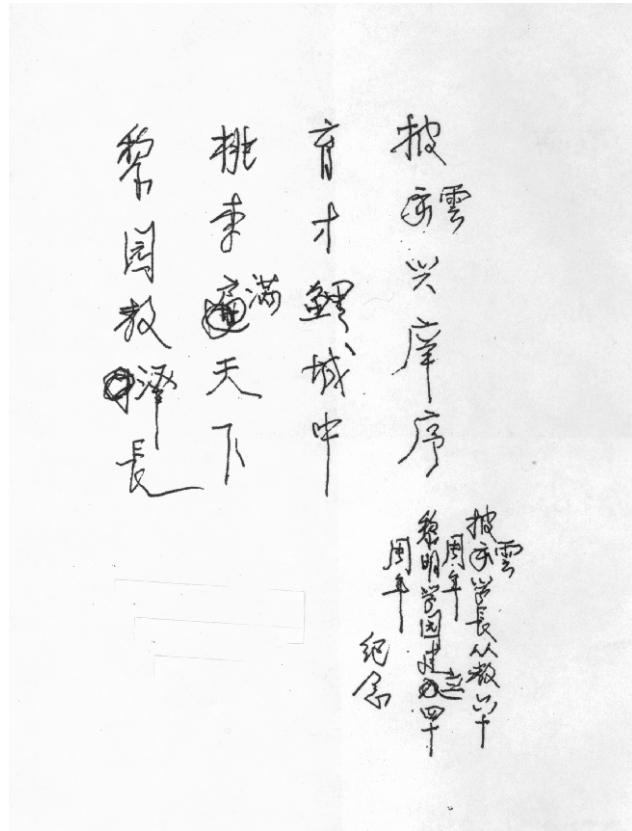 披雲兴庠序
育才鯉城中
桃李滿天下
黎園教澤長
披雲学長从教六十
周年
黎明学园建立四十
周年
纪念